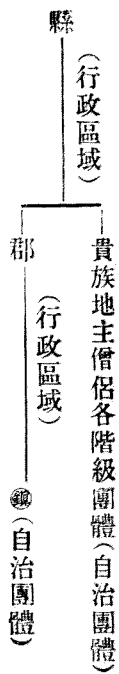 縣
(行政區域)
貴族地主僧侶各階級團體(自治團體)
郡
(行政區域)
鎭(自治團體)